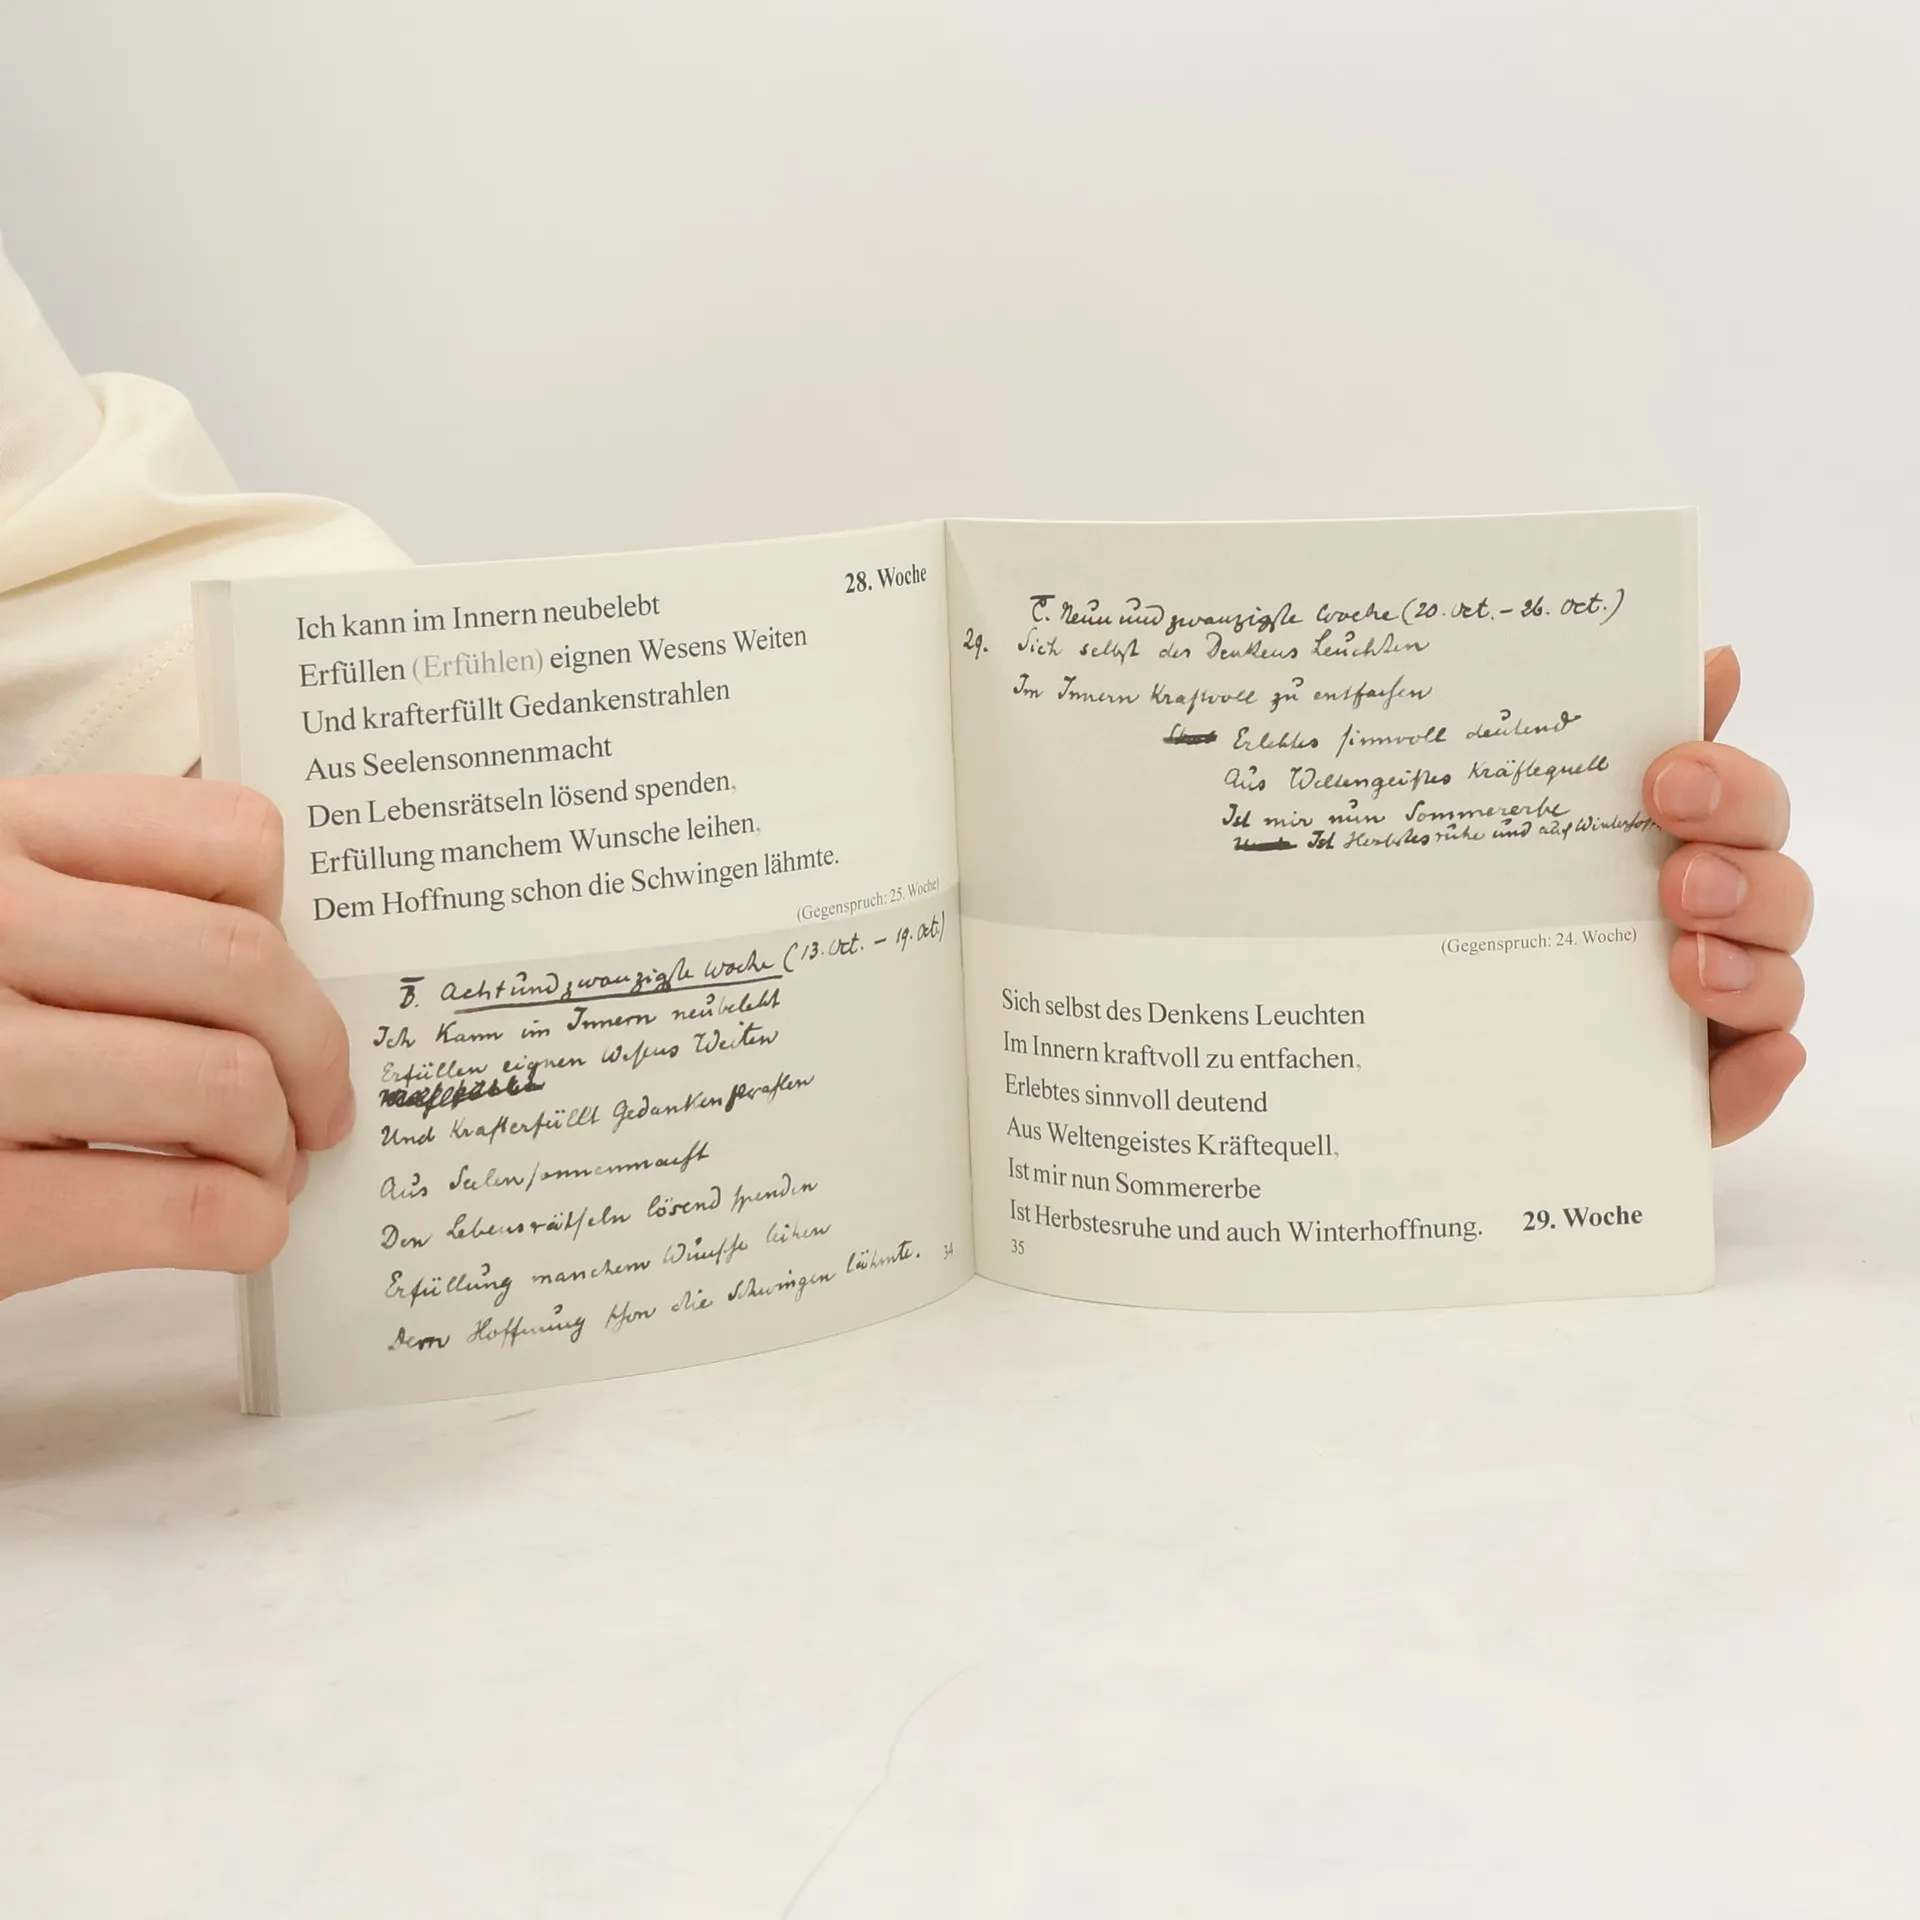 28. Woche
Ich kann im Innern neubelebt
Erfüllen (Erfühlen) eignen Wesens Weiten
Und krafterfüllt Gedankenstrahlen
Aus Seelensonnenmacht
Den Lebensrätseln lösend spenden,
Erfüllung manchem Wunsche leihen,
Dem Hoffnung schon die Schwingen lähmte.
(Gegenspruch: 25. Woche)
B. Achtundzwanzigste Woche (13. Oct. – 19. Oct.)
Ich kann im Innern neubelebt
Erfüllen eignen Wesens Weiten
Und krafterfüllt Gedankenstrahlen
Aus Seelensonnenmacht
Den Lebensrätseln lösend spenden
Erfüllung manchem Wunsche leihen
Dem Hoffnung schon die Schwingen lähmte.
34
C. Neunundzwanzigste Woche (20. Oct. – 26. Oct.)
29. Sich selbst des Denkens Leuchten
Im Innern kraftvoll zu entfachen
Erlebtes sinnvoll deutend
Aus Weltengeistes Kräftequell
Ist mir nun Sommererbe
Ist Herbstesruhe und auch
(Gegenspruch: 24. Woche)
Sich selbst des Denkens Leuchten
Im Innern kraftvoll zu entfachen,
Erlebtes sinnvoll deutend
Aus Weltengeistes Kräftequell,
Ist mir nun Sommererbe
Ist Herbstesruhe und auch Winterhoffnung.
29. Woche
35